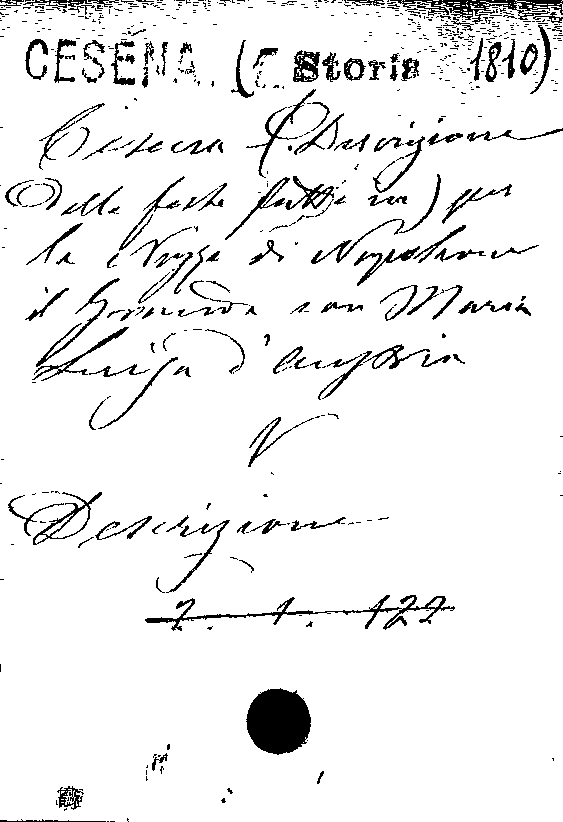 CESENA. (C. Storia 1810)
Cesena (Descrizione
delle feste fatte in) per
le Nozze di Napoleone
il Grande con Maria
Luigia d'Austria
V
Descrizione
2. 1. 122